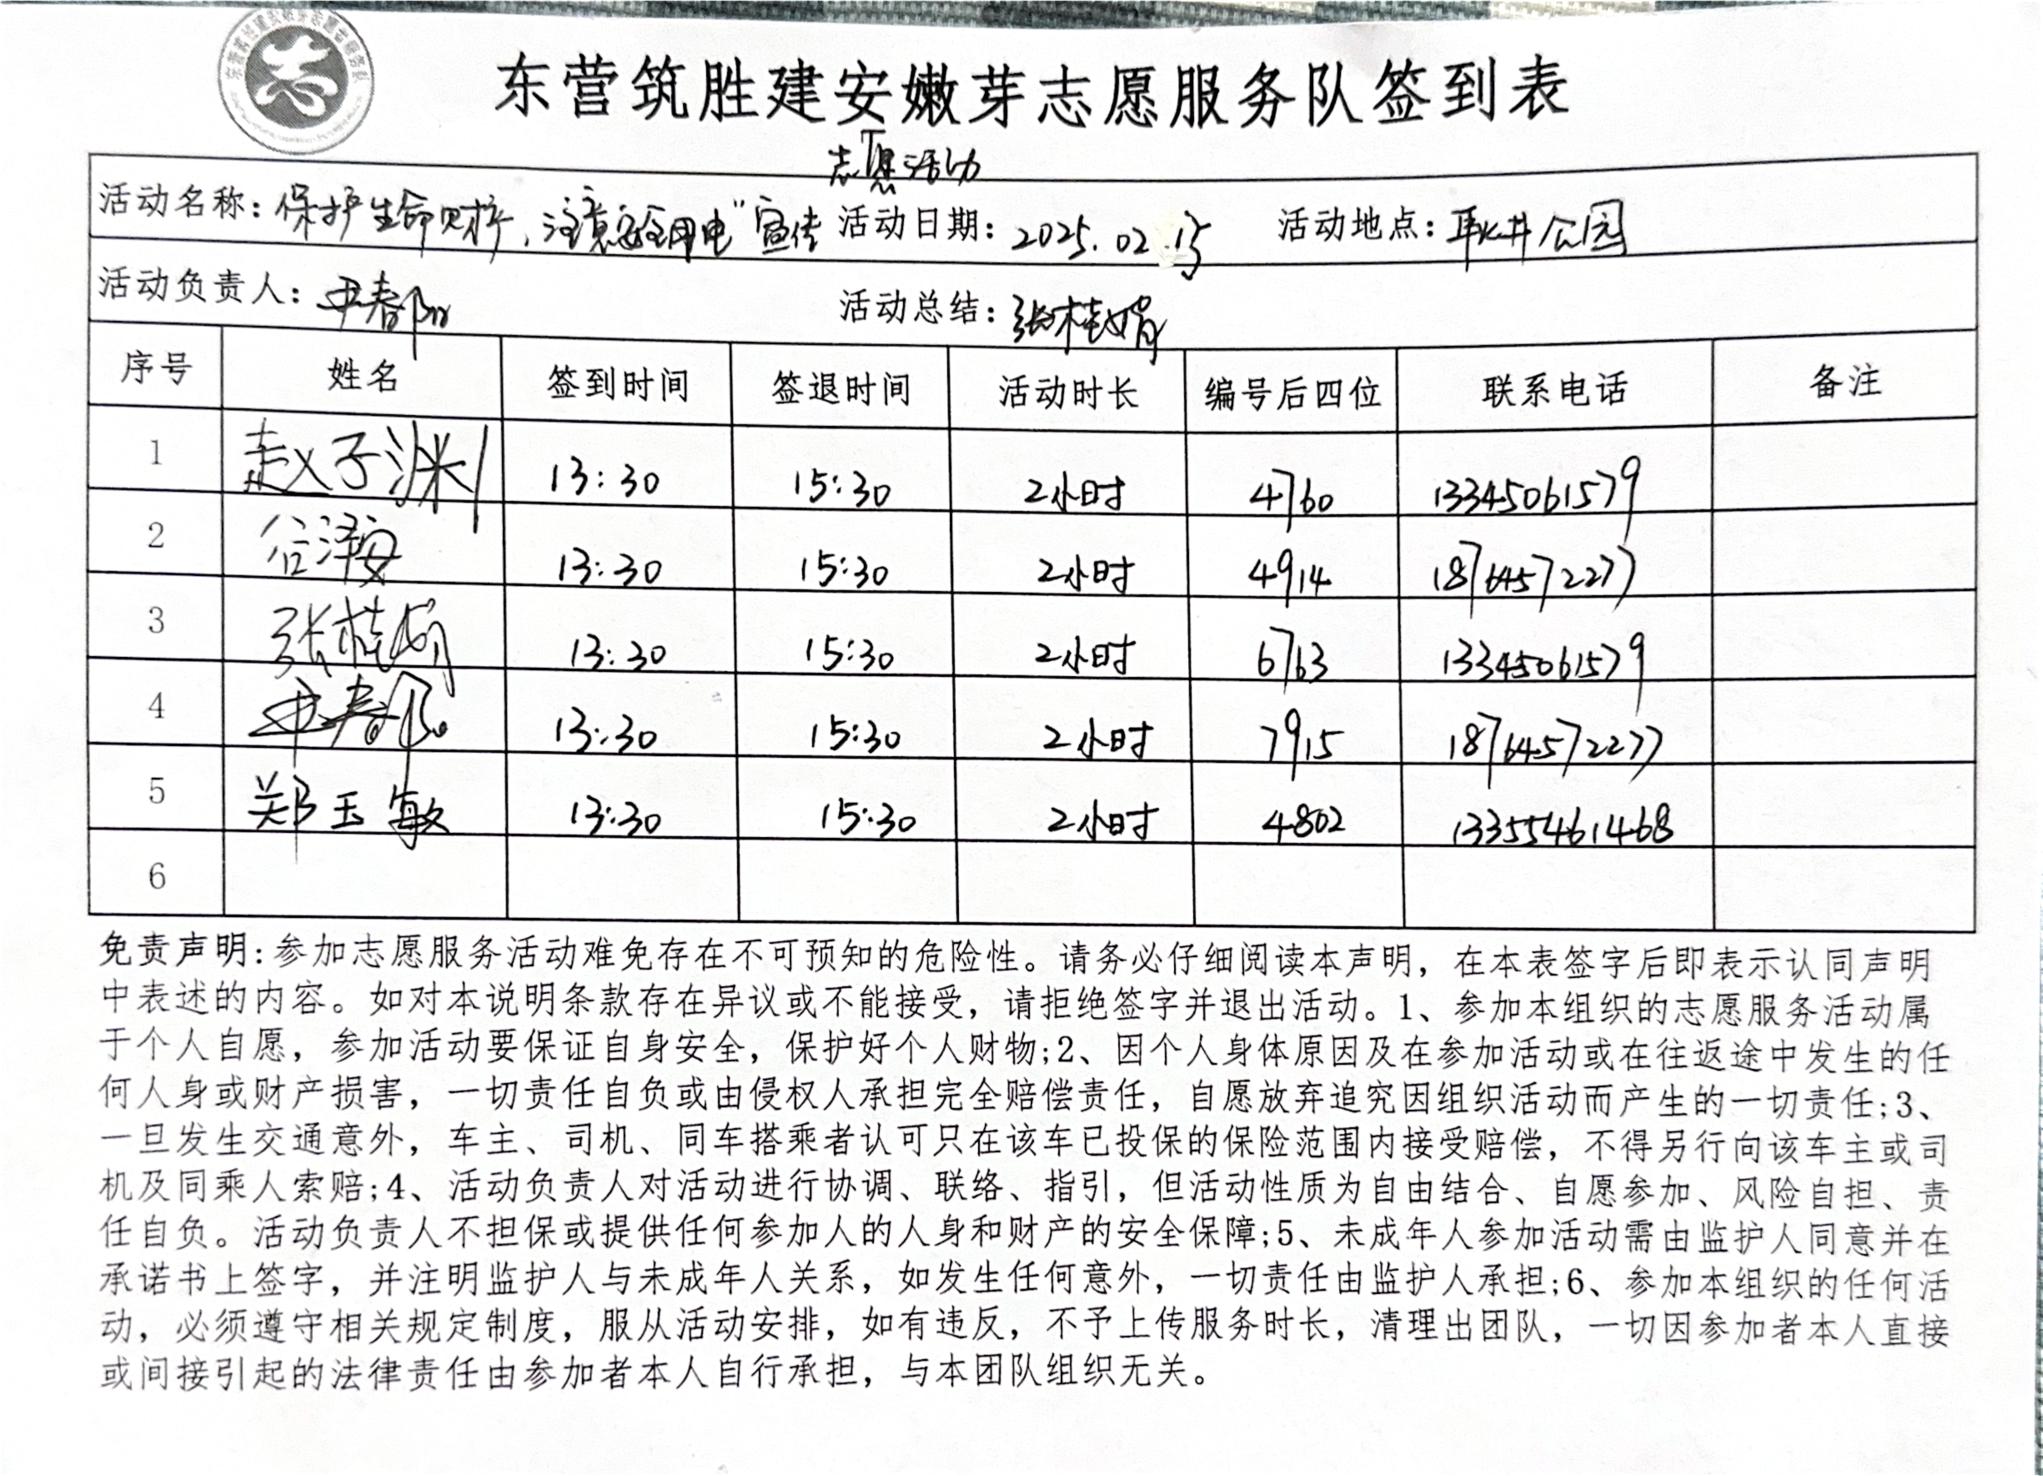 东营筑胜建安嫩芽志愿服务队签到表
志愿活动
活动名称：保护生命财产，注意安全用电"宣传 活动日期：2025.02.15 活动地点：耿井公园
活动负责人：尹春阳 活动总结：张桂娟
序号 姓名 签到时间 签退时间 活动时长 编号后四位 联系电话 备注
1 赵子洲 13:30 15:30 2小时 4760 13345061579
2 谷泽安 13:30 15:30 2小时 4914 18764572277
3 张桂娟 13:30 15:30 2小时 6763 13345061579
4 尹春阳 13:30 15:30 2小时 7915 18764572277
5 郑玉敏 13:30 15:30 2小时 4802 13355461468
6
免责声明:参加志愿服务活动难免存在不可预知的危险性。请务必仔细阅读本声明，在本表签字后即表示认同声明
中表述的内容。如对本说明条款存在异议或不能接受，请拒绝签字并退出活动。1、参加本组织的志愿服务活动属
于个人自愿，参加活动要保证自身安全，保护好个人财物;2、因个人身体原因及在参加活动或在往返途中发生的任
何人身或财产损害，一切责任自负或由侵权人承担完全赔偿责任，自愿放弃追究因组织活动而产生的一切责任;3、
一旦发生交通意外，车主、司机、同车搭乘者认可只在该车已投保的保险范围内接受赔偿，不得另行向该车主或司
机及同乘人索赔;4、活动负责人对活动进行协调、联络、指引，但活动性质为自由结合、自愿参加、风险自担、责
任自负。活动负责人不担保或提供任何参加人的人身和财产的安全保障;5、未成年人参加活动需由监护人同意并在
承诺书上签字，并注明监护人与未成年人关系，如发生任何意外，一切责任由监护人承担;6、参加本组织的任何活
动，必须遵守相关规定制度，服从活动安排，如有违反，不予上传服务时长，清理出团队，一切因参加者本人直接
或间接引起的法律责任由参加者本人自行承担，与本团队组织无关。